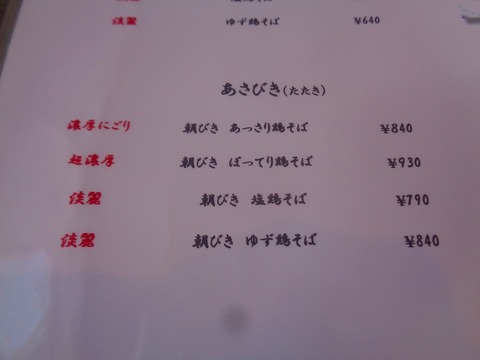 淡麗 ゆず鶏そば ¥640
あさびき(たたき)
濃厚にごり 朝びき あっさり鶏そば ¥840
超濃厚 朝びき ぽってり鶏そば ¥930
淡麗 朝びき 塩鶏そば ¥790
淡麗 朝びき ゆず鶏そば ¥840